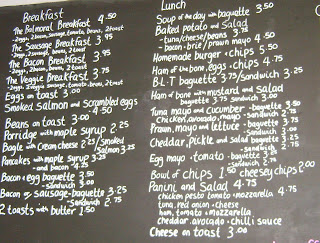 Breakfast
The Balmoral Breakfast 4.50
- 2 eggs, 2 bacon, sausage, tomato, beans, 2 toast
The Sausage Breakfast 3.95
- 2 eggs, 2 sausage, beans, 2 toast
The Bacon Breakfast 3.95
- 2 eggs, 2 bacon, beans, 2 toast
The Veggie Breakfast 3.75
- 2 eggs, 2 veggie sausage, tomato, beans, 2 toast
Eggs on toast 3.00
Smoked Salmon and Scrambled eggs 4.50
Beans on toast 3.00
Porridge with maple syrup 2.25
Bagle with Cream cheese 2.25 / Smoked Salmon 3.25
Pancakes with maple syrup
- and bacon
Bacon + egg baguette 3.50
- sandwich 3.00
Bacon or sausage - baguette 3.25
- Sandwich 2.75
2 toasts with butter 1.50
Lunch
Soup of the day with baguette 3.50
Baked potato and Salad
- tuna/cheese/beans 3.75
- bacon - brie/prawn mayo 4.50
Homemade burger - chips 5.50
Ham or bacon, eggs - chips 4.75
B-L-T baguette 3.75/sandwich 3.25
Ham off bone with mustard and salad
baguette 3.75 sandwich
Tuna mayo and cucumber - baguette 3.50
Chicken, avocado, mayo - sandwich 2.75
Prawn, mayo and lettuce - baguette 3.75
- sandwich
Cheddar, pickle and salad baguette 3.25
- sandwich 2.75
Egg mayo - tomato - baguette 2.75
- sandwich 2.75
Bowl of chips 1.50 cheesey chips 2.00
Panini and Salad 4.75
chicken pesto tomato + mozzarella
tuna, red onion + cheese
ham, tomato + mozzarella
cheddar, avocado + chilli sauce
Cheese on toast 3.00